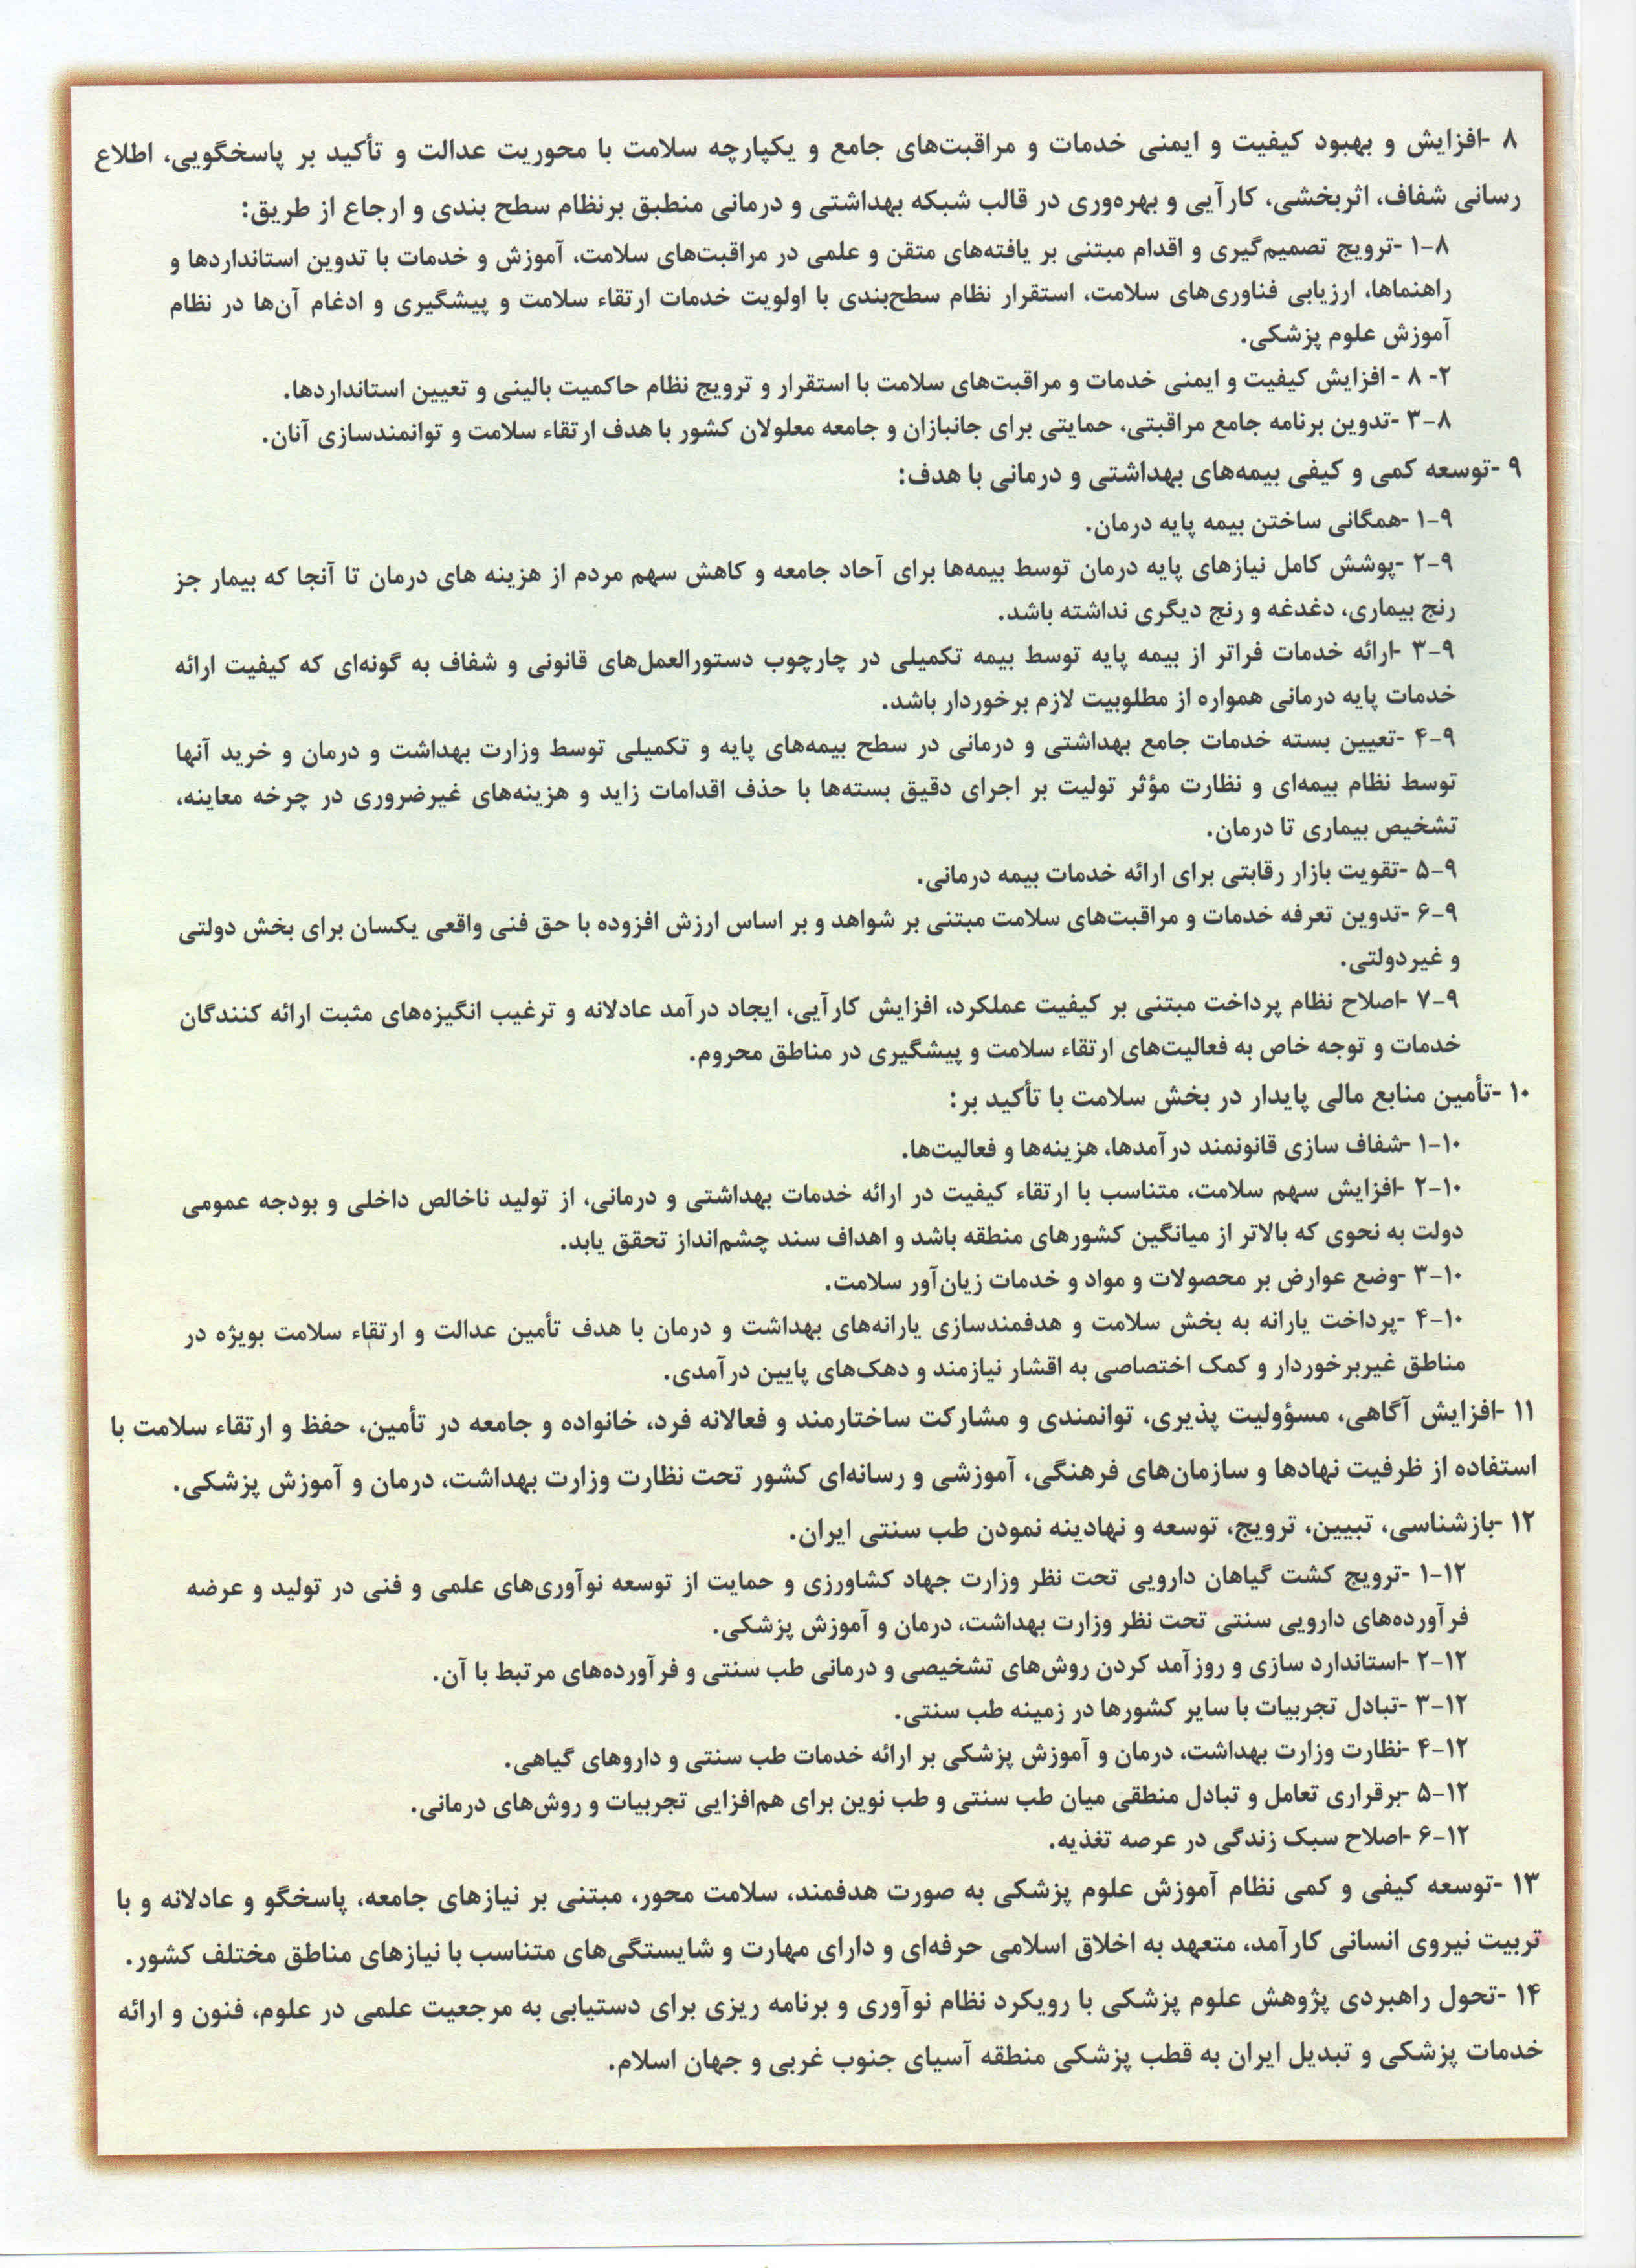 ۸ -افزایش و بهبود کیفیت و ایمنی خدمات و مراقبت‌های جامع و یکپارچه سلامت با محوریت عدالت و تأکید بر پاسخگویی، اطلاع
رسانی شفاف، اثربخشی، کارآیی و بهره‌وری در قالب شبکه بهداشتی و درمانی منطبق برنظام سطح بندی و ارجاع از طریق:
۸-۱ -ترویج تصمیم‌گیری و اقدام مبتنی بر یافته‌های متقن و علمی در مراقبت‌های سلامت، آموزش و خدمات با تدوین استانداردها و
راهنماها، ارزیابی فناوری‌های سلامت، استقرار نظام سطح‌بندی با اولویت خدمات ارتقاء سلامت و پیشگیری و ادغام آن‌ها در نظام
آموزش علوم پزشکی.
۲- ۸ - افزایش کیفیت و ایمنی خدمات و مراقبت‌های سلامت با استقرار و ترویج نظام حاکمیت بالینی و تعیین استانداردها.
۸-۳ -تدوین برنامه جامع مراقبتی، حمایتی برای جانبازان و جامعه معلولان کشور با هدف ارتقاء سلامت و توانمندسازی آنان.
۹ -توسعه کمی و کیفی بیمه‌های بهداشتی و درمانی با هدف:
۹-۱ -همگانی ساختن بیمه پایه درمان.
۹-۲ -پوشش کامل نیازهای پایه درمان توسط بیمه‌ها برای آحاد جامعه و کاهش سهم مردم از هزینه های درمان تا آنجا که بیمار جز
رنج بیماری، دغدغه و رنج دیگری نداشته باشد.
۹-۳ -ارائه خدمات فراتر از بیمه پایه توسط بیمه تکمیلی در چارچوب دستورالعمل‌های قانونی و شفاف به گونه‌ای که کیفیت ارائه
خدمات پایه درمانی همواره از مطلوبیت لازم برخوردار باشد.
۹-۴ -تعیین بسته خدمات جامع بهداشتی و درمانی در سطح بیمه‌های پایه و تکمیلی توسط وزارت بهداشت و درمان و خرید آنها
توسط نظام بیمه‌ای و نظارت مؤثر تولیت بر اجرای دقیق بسته‌ها با حذف اقدامات زاید و هزینه‌های غیرضروری در چرخه معاینه،
تشخیص بیماری تا درمان.
۹-۵ -تقویت بازار رقابتی برای ارائه خدمات بیمه درمانی.
۹-۶ -تدوین تعرفه خدمات و مراقبت‌های سلامت مبتنی بر شواهد و بر اساس ارزش افزوده با حق فنی واقعی یکسان برای بخش دولتی
و غیردولتی.
۹-۷ -اصلاح نظام پرداخت مبتنی بر کیفیت عملکرد، افزایش کارآیی، ایجاد درآمد عادلانه و ترغیب انگیزه‌های مثبت ارائه کنندگان
خدمات و توجه خاص به فعالیت‌های ارتقاء سلامت و پیشگیری در مناطق محروم.
۱۰ -تأمین منابع مالی پایدار در بخش سلامت با تأکید بر:
۱۰-۱ -شفاف سازی قانونمند درآمدها، هزینه‌ها و فعالیت‌ها.
۱۰-۲ -افزایش سهم سلامت، متناسب با ارتقاء کیفیت در ارائه خدمات بهداشتی و درمانی، از تولید ناخالص داخلی و بودجه عمومی
دولت به نحوی که بالاتر از میانگین کشورهای منطقه باشد و اهداف سند چشم‌انداز تحقق یابد.
۱۰-۳ -وضع عوارض بر محصولات و مواد و خدمات زیان‌آور سلامت.
۱۰-۴ -پرداخت یارانه به بخش سلامت و هدفمندسازی یارانه‌های بهداشت و درمان با هدف تأمین عدالت و ارتقاء سلامت بویژه در
مناطق غیربرخوردار و کمک اختصاصی به اقشار نیازمند و دهک‌های پایین درآمدی.
۱۱ -افزایش آگاهی، مسؤولیت پذیری، توانمندی و مشارکت ساختارمند و فعالانه فرد، خانواده و جامعه در تأمین، حفظ و ارتقاء سلامت با
استفاده از ظرفیت نهادها و سازمان‌های فرهنگی، آموزشی و رسانه‌ای کشور تحت نظارت وزارت بهداشت، درمان و آموزش پزشکی.
۱۲ -بازشناسی، تبیین، ترویج، توسعه و نهادینه نمودن طب سنتی ایران.
۱۲-۱ -ترویج کشت گیاهان دارویی تحت نظر وزارت جهاد کشاورزی و حمایت از توسعه نوآوری‌های علمی و فنی در تولید و عرضه
فرآورده‌های دارویی سنتی تحت نظر وزارت بهداشت، درمان و آموزش پزشکی.
۱۲-۲ -استاندارد سازی و روزآمد کردن روش‌های تشخیصی و درمانی طب سنتی و فرآورده‌های مرتبط با آن.
۱۲-۳ -تبادل تجربیات با سایر کشورها در زمینه طب سنتی.
۱۲-۴ -نظارت وزارت بهداشت، درمان و آموزش پزشکی بر ارائه خدمات طب سنتی و داروهای گیاهی.
۱۲-۵ -برقراری تعامل و تبادل منطقی میان طب سنتی و طب نوین برای هم‌افزایی تجربیات و روش‌های درمانی.
۱۲-۶ -اصلاح سبک زندگی در عرصه تغذیه.
۱۳ -توسعه کیفی و کمی نظام آموزش علوم پزشکی به صورت هدفمند، سلامت محور، مبتنی بر نیازهای جامعه، پاسخگو و عادلانه و با
تربیت نیروی انسانی کارآمد، متعهد به اخلاق اسلامی حرفه‌ای و دارای مهارت و شایستگی‌های متناسب با نیازهای مناطق مختلف کشور.
۱۴ -تحول راهبردی پژوهش علوم پزشکی با رویکرد نظام نوآوری و برنامه ریزی برای دستیابی به مرجعیت علمی در علوم، فنون و ارائه
خدمات پزشکی و تبدیل ایران به قطب پزشکی منطقه آسیای جنوب غربی و جهان اسلام.